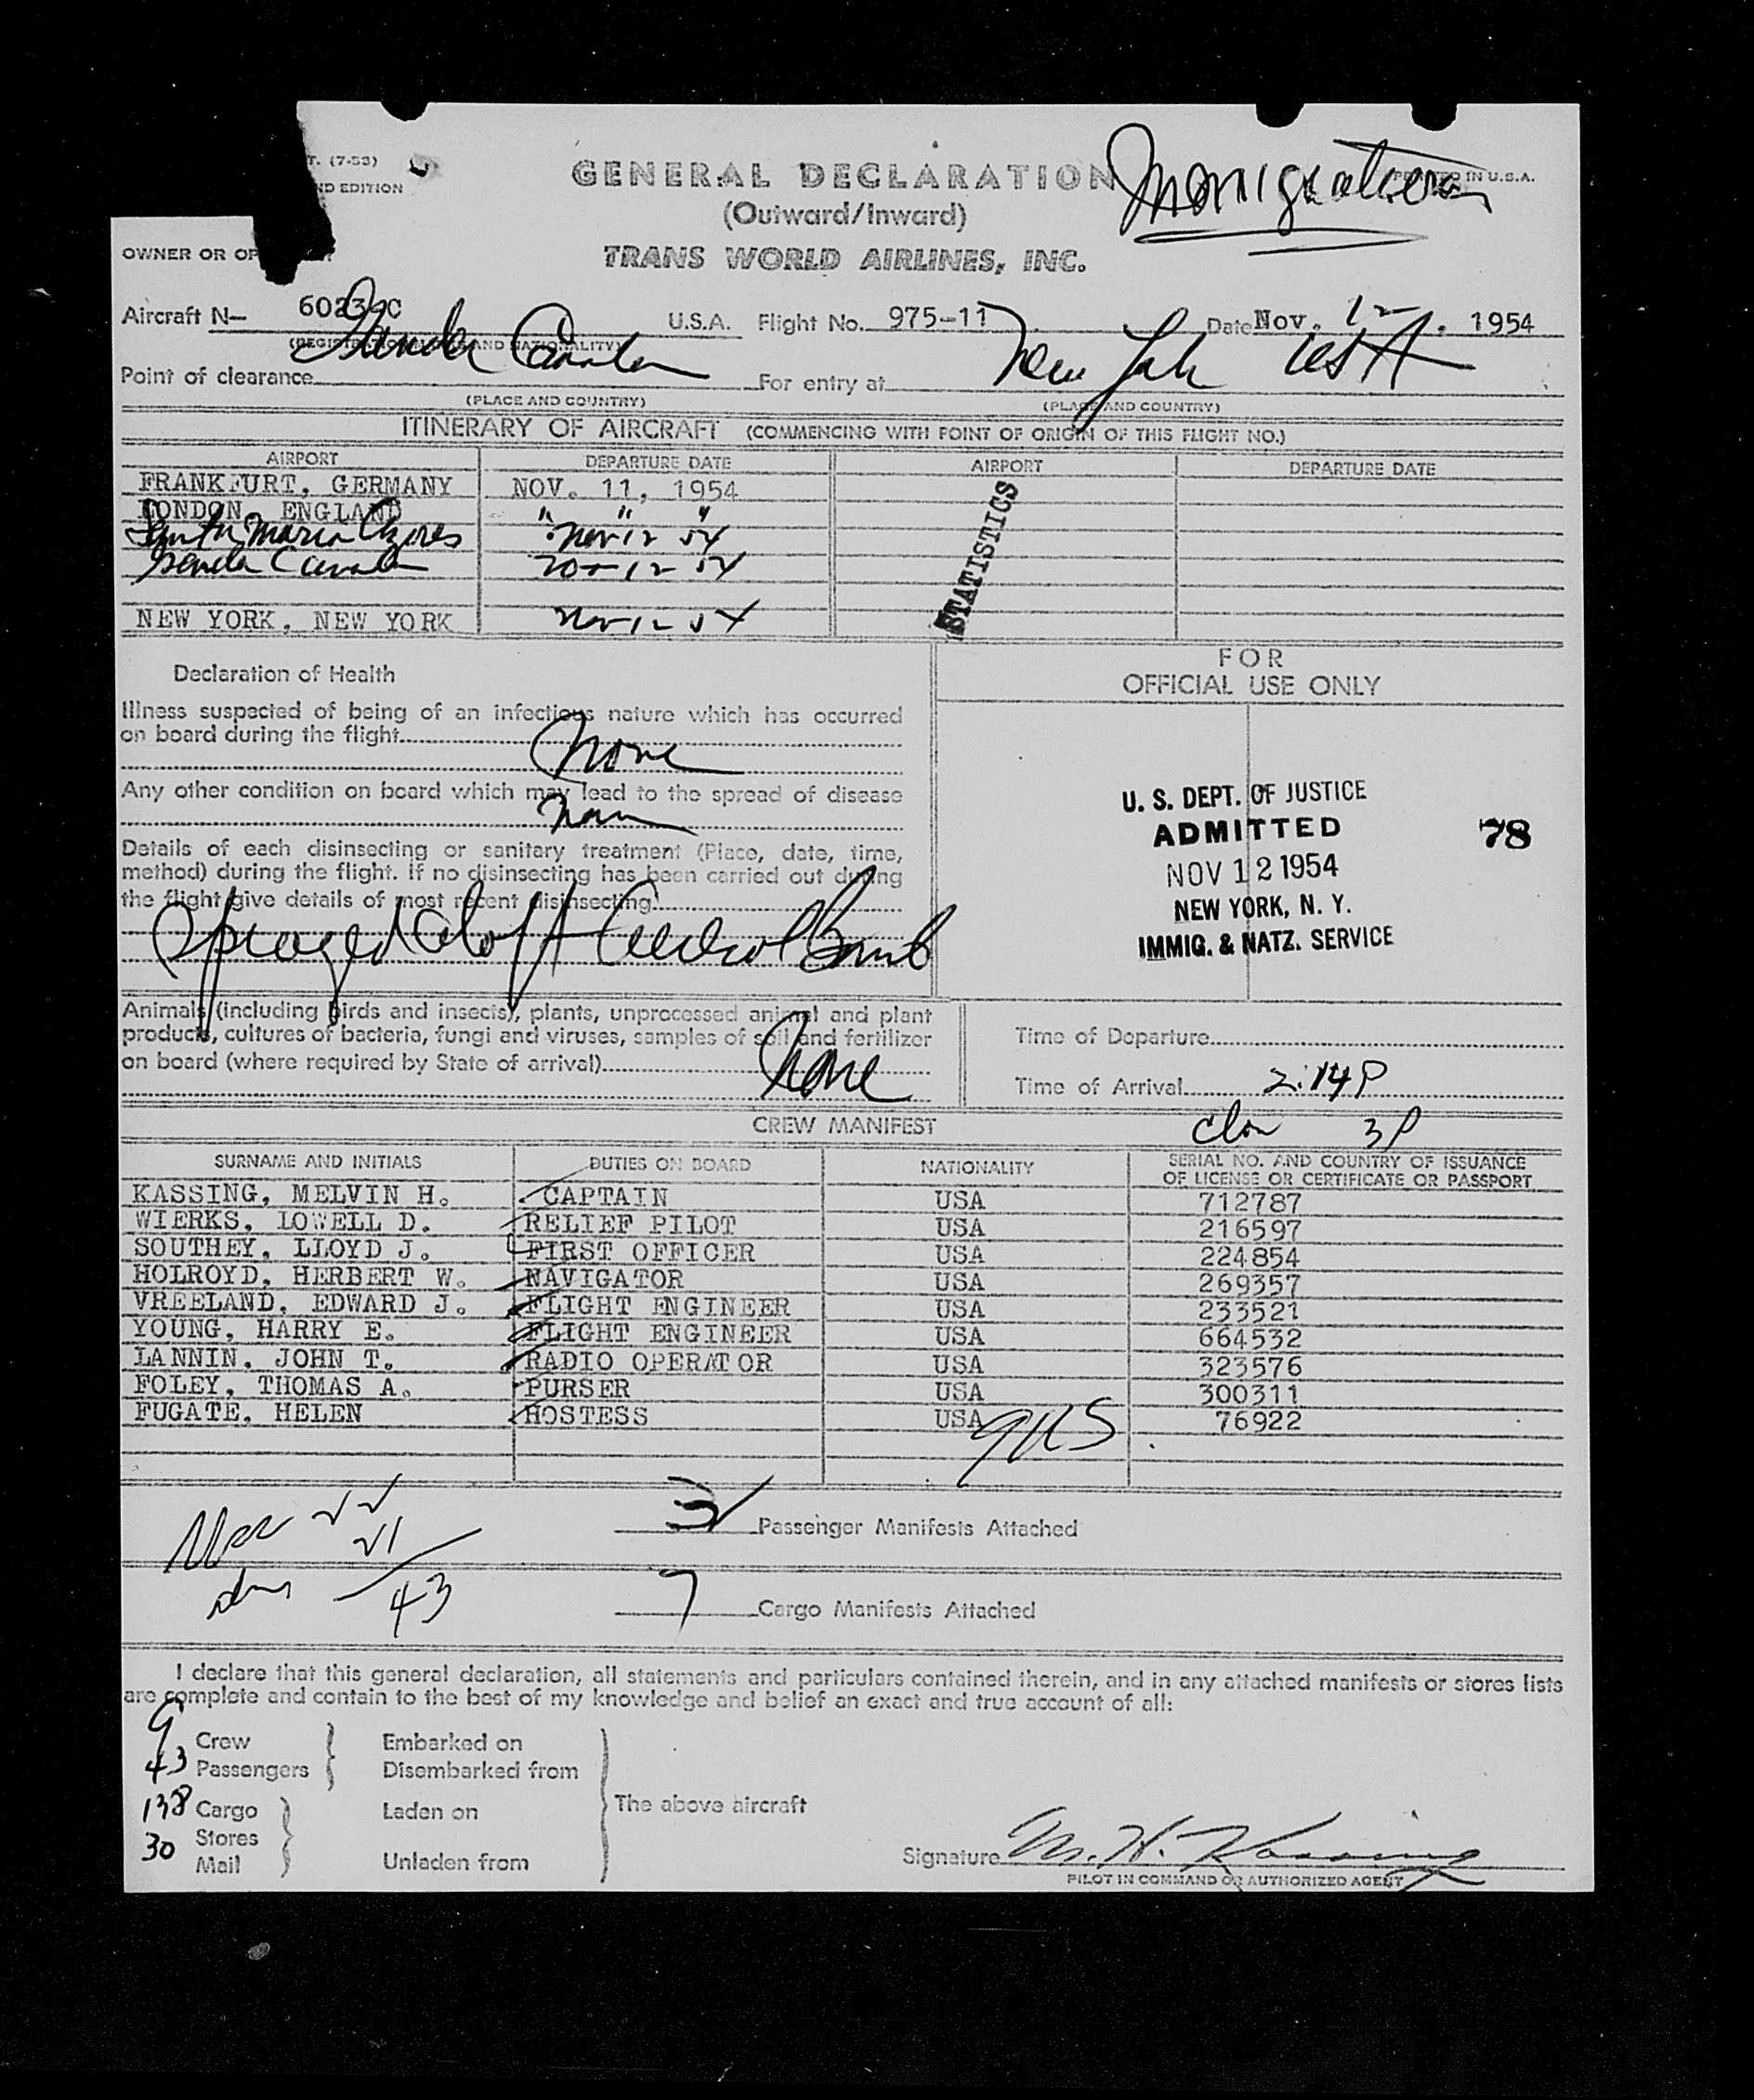 T. (7-53)
ND EDITION
GENERAL DECLARATION
(Outward/Inward)
IN U.S.A.
OWNER OR OP
TRANS WORLD AIRLINES, INC.
Aircraft N— U.S.A. Flight No. 975-11 Date Nov. 12, 1954
Point of clearance For entry at New York USA
(PLACE AND COUNTRY) (PLACE AND COUNTRY)
ITINERARY OF AIRCRAFT (COMMENCING WITH POINT OF ORIGIN OF THIS FLIGHT NO.)
AIRPORT DEPARTURE DATE AIRPORT DEPARTURE DATE
FRANKFURT, GERMANY NOV. 11, 1954
LONDON, ENGLAND " " "
Santa Maria Azores Nov 12 54
Nov 12 54
NEW YORK, NEW YORK Nov 12 54
STATISTICS
Declaration of Health
FOR
OFFICIAL USE ONLY
Illness suspected of being of an infectious nature which has occurred
on board during the flight None
Any other condition on board which may lead to the spread of disease
None
Details of each disinsecting or sanitary treatment (Place, date, time,
method) during the flight. If no disinsecting has been carried out during
the flight give details of most recent disinsecting.
Sprayed aloft Aerosol Bomb
U. S. DEPT. OF JUSTICE
ADMITTED 78
NOV 12 1954
NEW YORK, N. Y.
IMMIG. & NATZ. SERVICE
Animals (including birds and insects), plants, unprocessed animal and plant
products, cultures of bacteria, fungi and viruses, samples of soil and fertilizer
on board (where required by State of arrival) None
Time of Departure
Time of Arrival 2:14P
3P
CREW MANIFEST
SURNAME AND INITIALS DUTIES ON BOARD NATIONALITY SERIAL NO. AND COUNTRY OF ISSUANCE
OF LICENSE OR CERTIFICATE OR PASSPORT
KASSING, MELVIN H. CAPTAIN USA 712787
WIERKS, LOWELL D. RELIEF PILOT USA 216597
SOUTHEY, LLOYD J. FIRST OFFICER USA 224854
HOLROYD, HERBERT W. NAVIGATOR USA 269357
VREELAND, EDWARD J. FLIGHT ENGINEER USA 233521
YOUNG, HARRY E. FLIGHT ENGINEER USA 664532
LANNIN, JOHN T. RADIO OPERATOR USA 323576
FOLEY, THOMAS A. PURSER USA 300311
FUGATE, HELEN HOSTESS USA 76922
9US
Passenger Manifests Attached
43
7 Cargo Manifests Attached
I declare that this general declaration, all statements and particulars contained therein, and in any attached manifests or stores lists
are complete and contain to the best of my knowledge and belief an exact and true account of all:
9 Crew Embarked on
43 Passengers Disembarked from
138 Cargo Laden on The above aircraft
30 Stores
Mail Unladen from
Signature M. H. Kassing
PILOT IN COMMAND OR AUTHORIZED AGENT